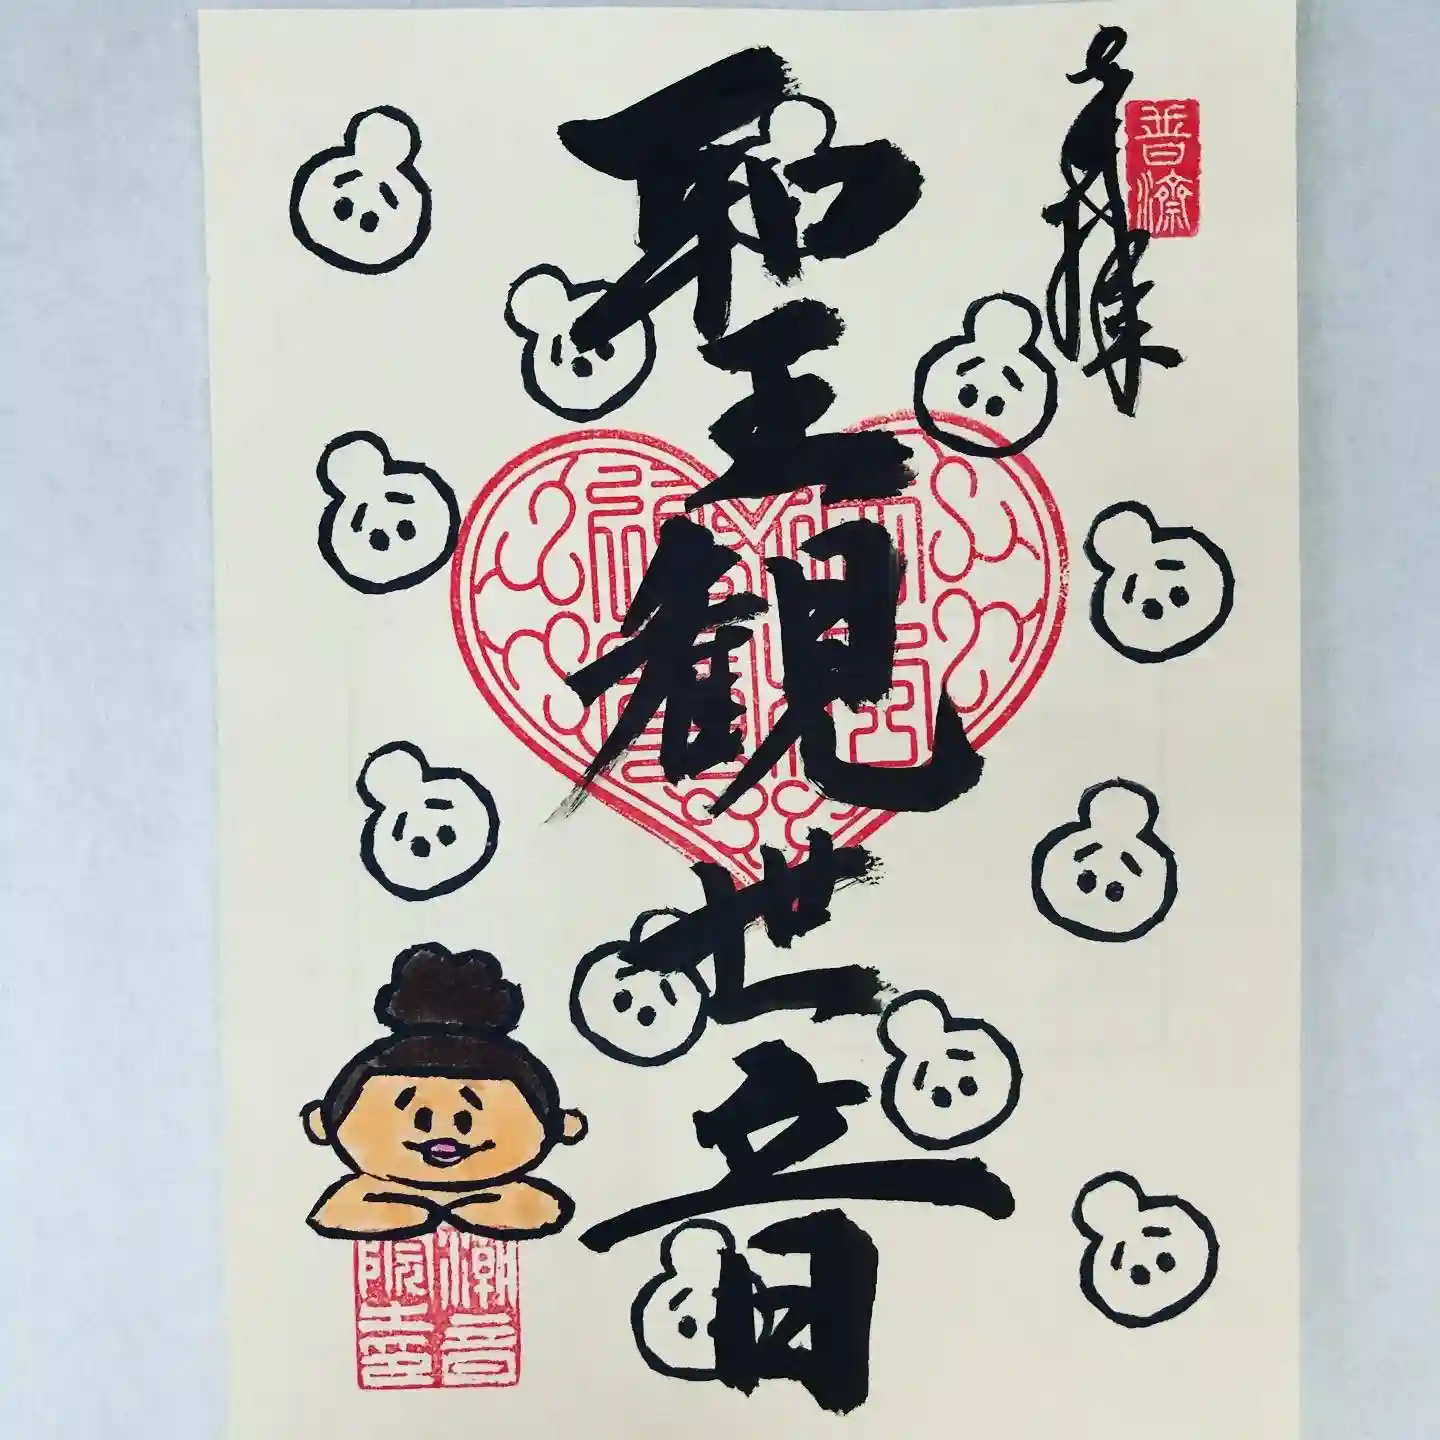 奉拝
普濟
聖観世音
潮音
院章